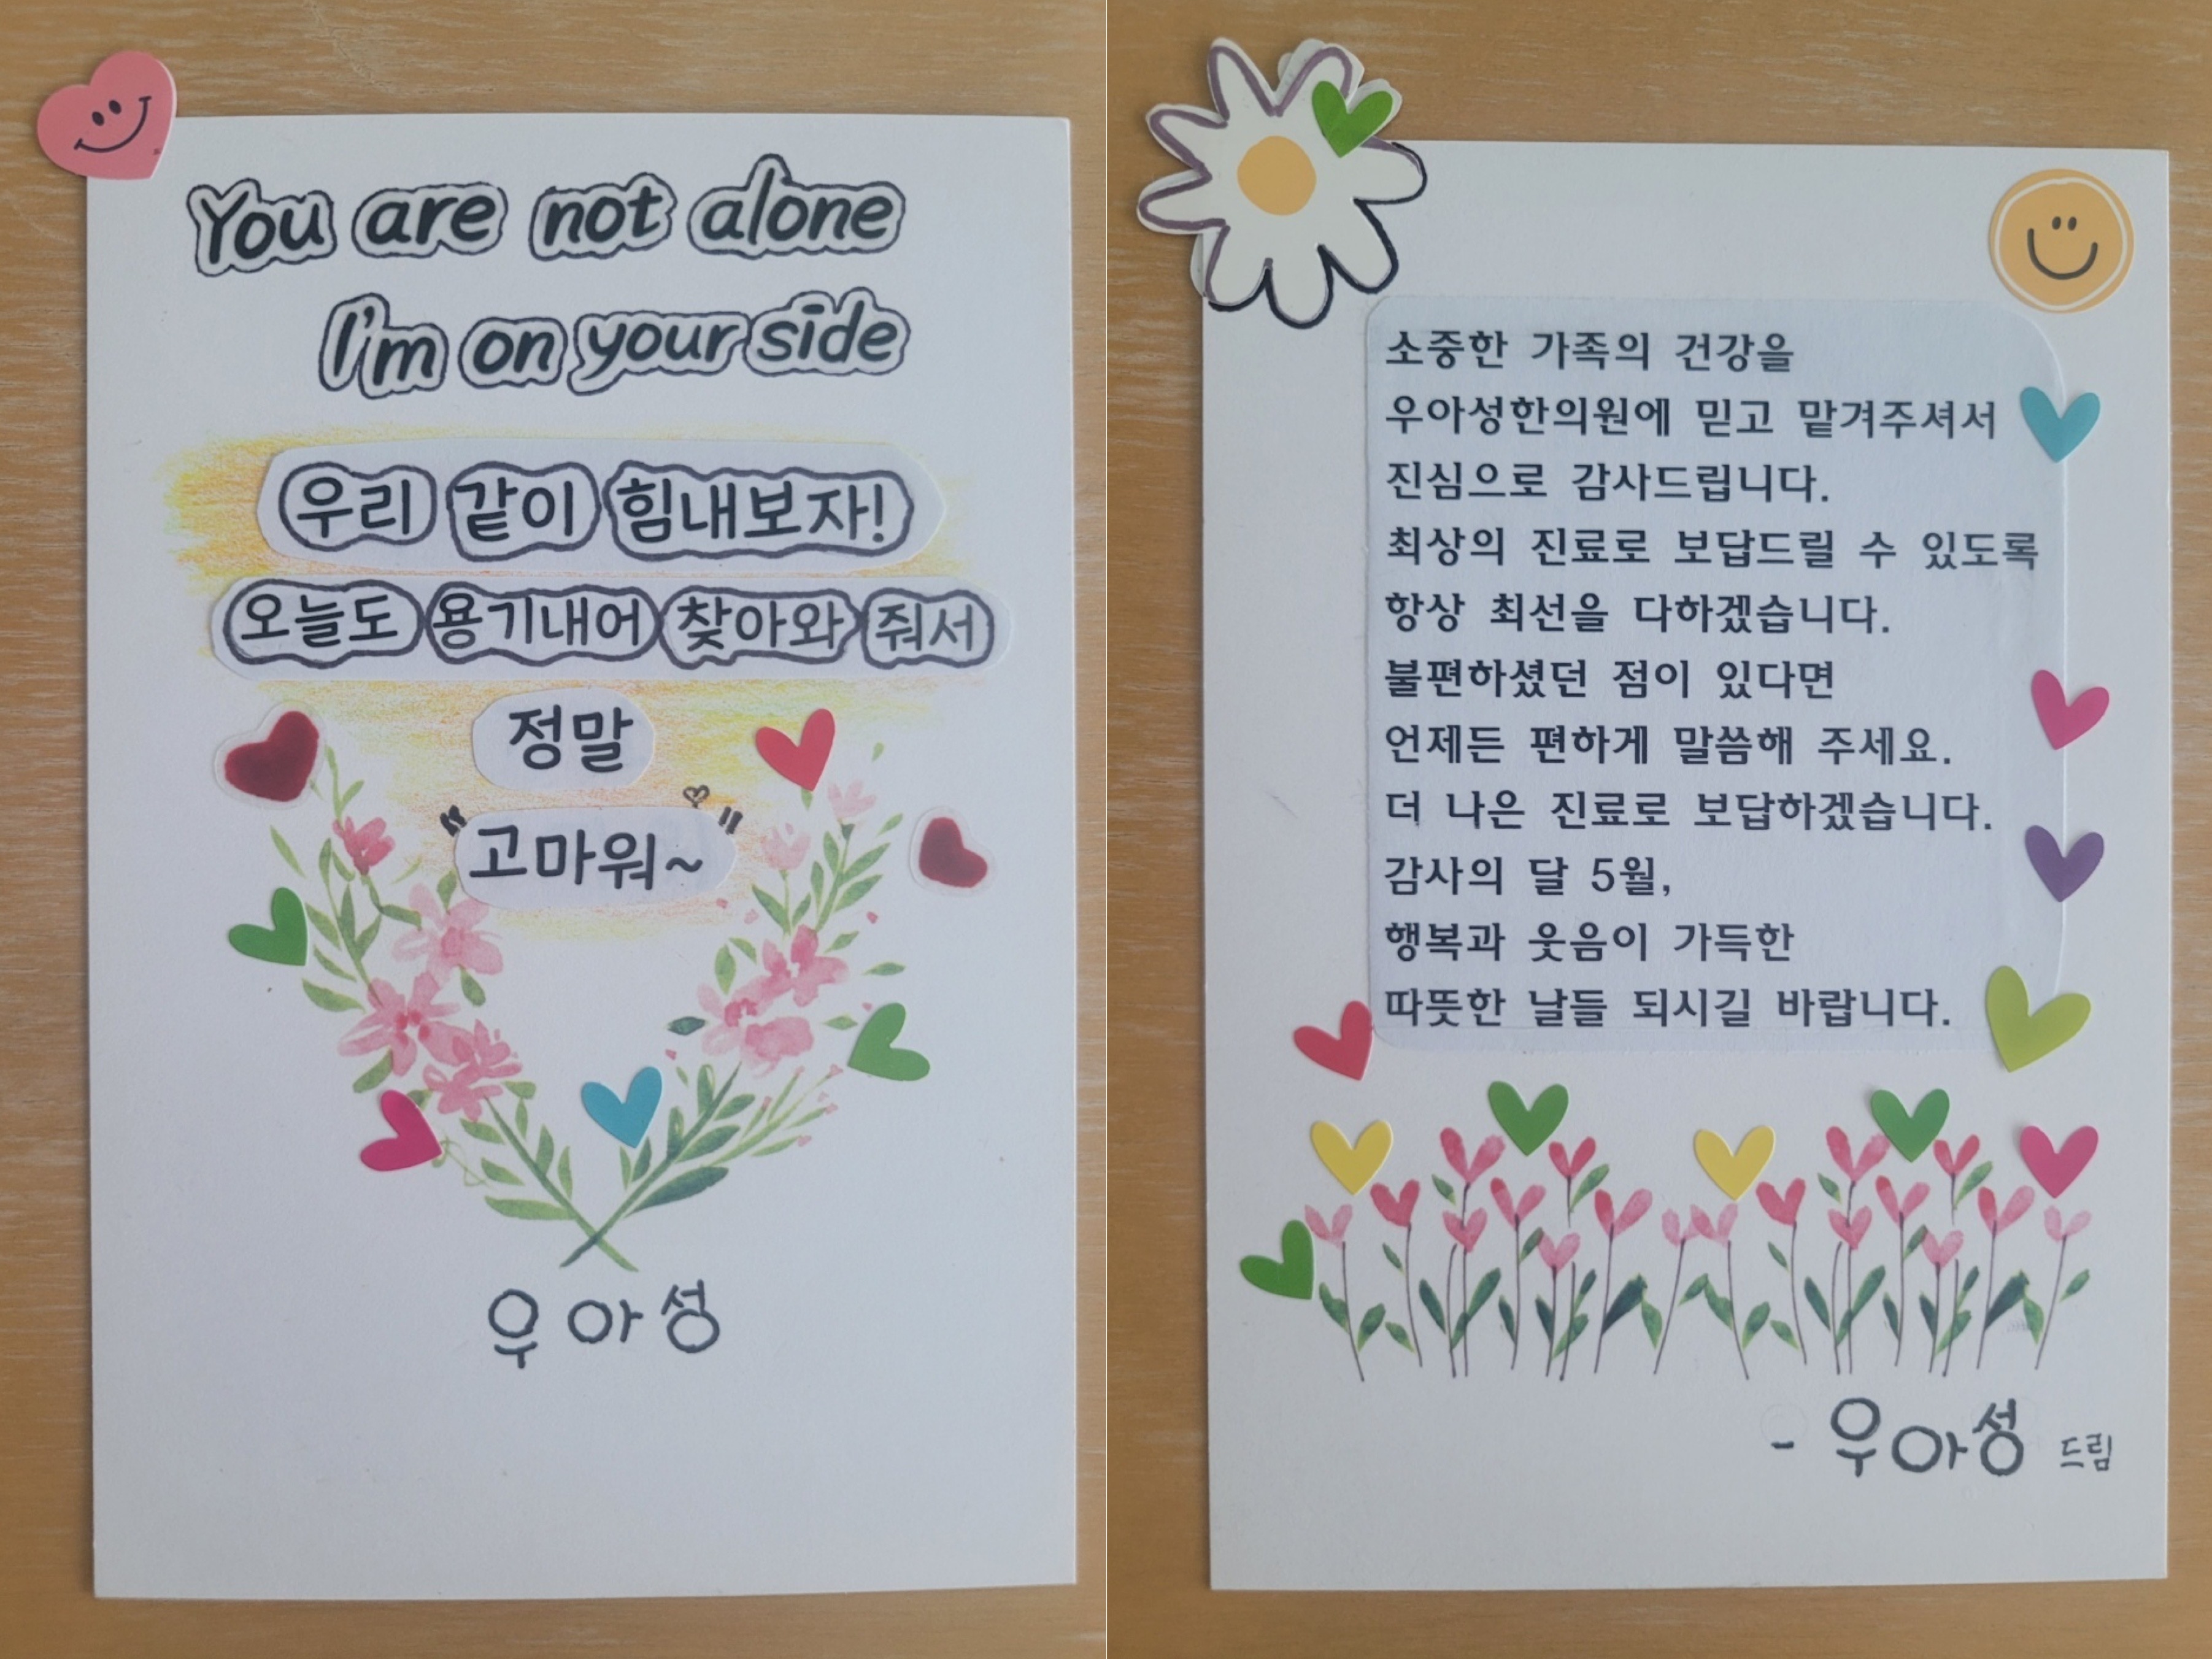 You are not alone
I'm on your side
우리 같이 힘내보자!
오늘도 용기내어 찾아와 줘서
정말
"고마워~"
우아성
소중한 가족의 건강을
우아성한의원에 믿고 맡겨주셔서
진심으로 감사드립니다.
최상의 진료로 보답드릴 수 있도록
항상 최선을 다하겠습니다.
불편하셨던 점이 있다면
언제든 편하게 말씀해 주세요.
더 나은 진료로 보답하겠습니다.
감사의 달 5월,
행복과 웃음이 가득한
따뜻한 날들 되시길 바랍니다.
- 우아성 드림